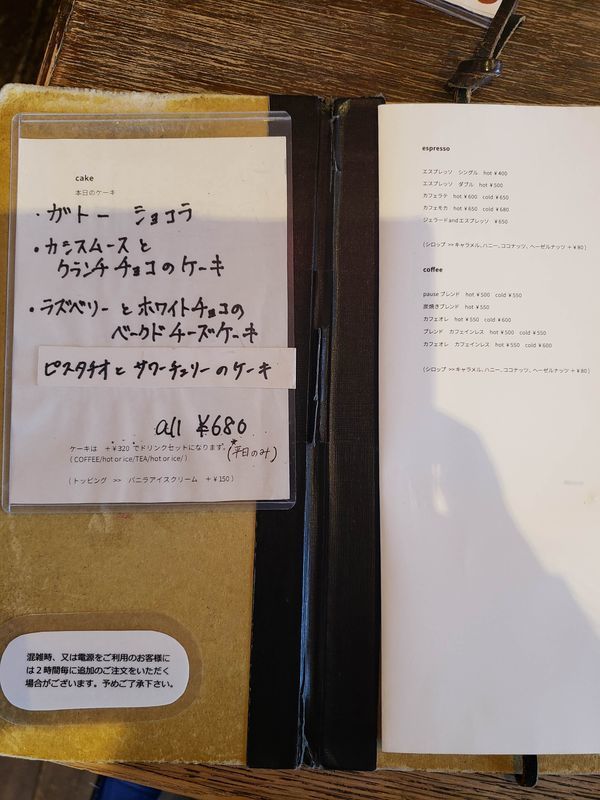 cake
本日のケーキ
・ガトー ショコラ
・カシスムースと
クランチチョコのケーキ
・ラズベリーとホワイトチョコの
ベークドチーズケーキ
ピスタチオとサワーチェリーのケーキ
all ¥680
ケーキは +¥320 でドリンクセットになります。(平日のみ)
( COFFEE/hot or ice/TEA/hot or ice/ )
( トッピング >> バニラアイスクリーム +¥150 )
混雑時、又は電源をご利用のお客様に
は2時間毎に追加のご注文をいただく
場合がございます。予めご了承下さい。
espresso
エスプレッソ シングル hot ¥400
エスプレッソ ダブル hot ¥500
カフェラテ hot ¥600 cold ¥650
カフェモカ hot ¥650 cold ¥680
ジェラードandエスプレッソ ¥650
( シロップ >> キャラメル、ハニー、ココナッツ、ヘーゼルナッツ + ¥80 )
coffee
pause ブレンド hot ¥500 cold ¥550
炭焼きブレンド hot ¥550
カフェオレ hot ¥550 cold ¥600
ブレンド カフェインレス hot ¥500 cold ¥550
カフェオレ カフェインレス hot ¥550 cold ¥600
( シロップ >> キャラメル、ハニー、ココナッツ、ヘーゼルナッツ + ¥80 )